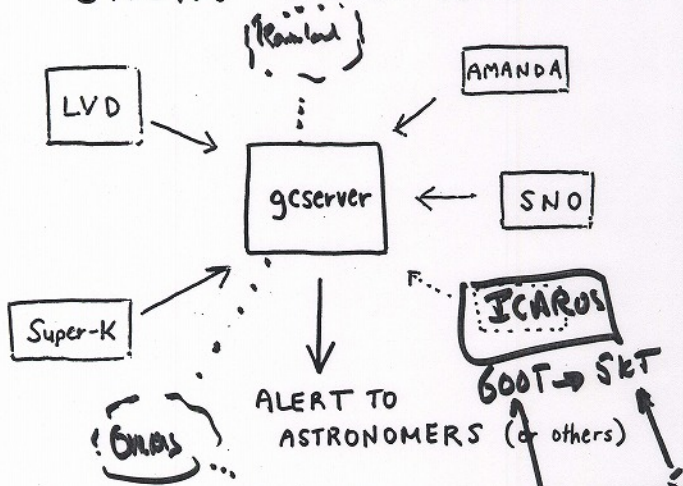 LVD
AMANDA
gcserver
SNO
Super-K
ICAROS
600T → 5kT
ALERT TO
ASTRONOMERS (or others)